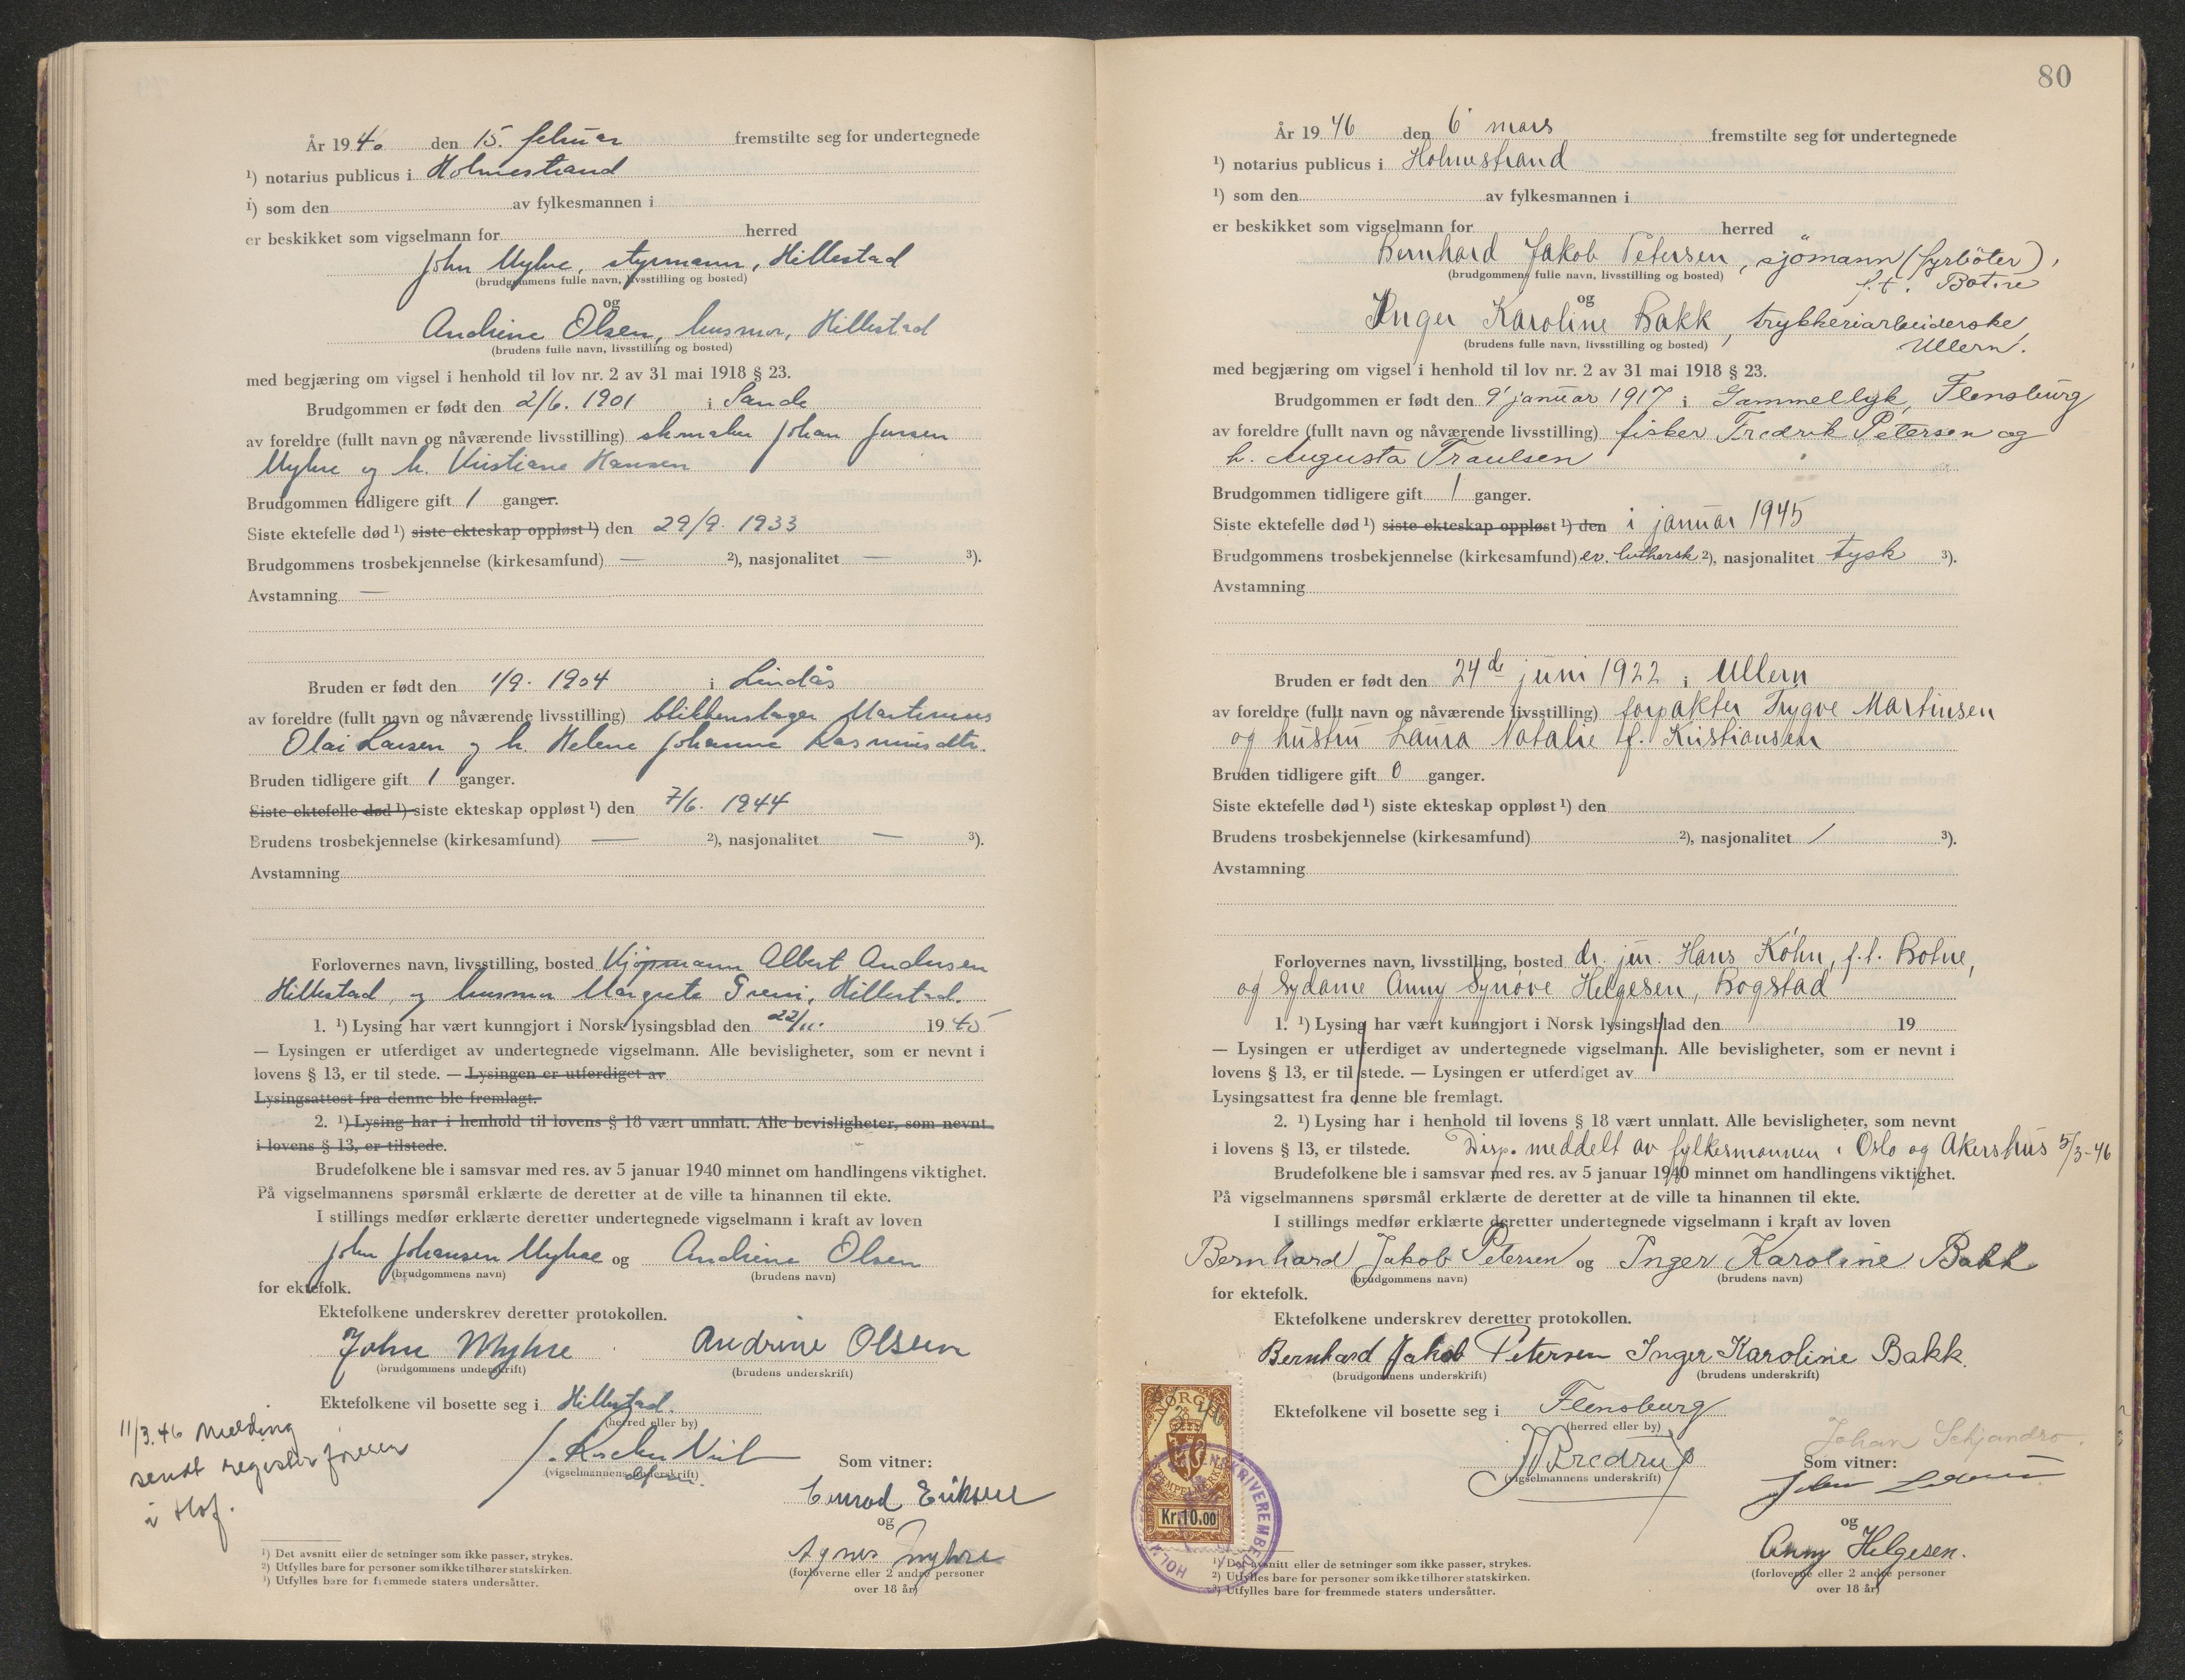 År 1946 den 15. februar fremstilte seg for undertegnede
¹) notarius publicus i Holmestrand
¹) som den av fylkesmannen i
er beskikket som vigselmann for herred
John Myhre, styrmann, Hillestad
(brudgommens fulle navn, livsstilling og bosted)
og
Andrine Olsen, husmor, Hillestad
(brudens fulle navn, livsstilling og bosted)
med begjæring om vigsel i henhold til lov nr. 2 av 31 mai 1918 § 23.
Brudgommen er født den 2/6. 1901 i Sande
av foreldre (fullt navn og nåværende livsstilling) skomaker Johan Jensen
Myhre og h. Kristiane Hansen
Brudgommen tidligere gift 1 ganger.
Siste ektefelle død ¹) siste ekteskap oppløst ¹) den 29/9. 1933
Brudgommens trosbekjennelse (kirkesamfund) — ²), nasjonalitet — ³).
Avstamning —
Bruden er født den 1/9. 1904 i Lindås
av foreldre (fullt navn og nåværende livsstilling) blikkenslager Martinius
Olai Larsen og h. Helene Johanne Rasmusdtr.
Bruden tidligere gift 1 ganger.
Siste ektefelle død ¹) siste ekteskap oppløst ¹) den 7/6. 1944
Brudens trosbekjennelse (kirkesamfund) — ²), nasjonalitet — ³).
Avstamning
Forlovernes navn, livsstilling, bosted Kjøpmann Albert Andersen
Hillestad, og husmor Margrete Greni, Hillestad.
1. ¹) Lysing har vært kunngjort i Norsk lysingsblad den 22/11. 1945
— Lysingen er utferdiget av undertegnede vigselmann. Alle bevisligheter, som er nevnt i
lovens § 13, er til stede. — Lysingen er utferdiget av
Lysingsattest fra denne ble fremlagt.
2. ¹) Lysing har i henhold til lovens § 18 vært unnlatt. Alle bevisligheter, som nevnt
i lovens § 13, er tilstede.
Brudefolkene ble i samsvar med res. av 5 januar 1940 minnet om handlingens viktighet.
På vigselmannens spørsmål erklærte de deretter at de ville ta hinannen til ekte.
I stillings medfør erklærte deretter undertegnede vigselmann i kraft av loven
John Johansen Myhre og Andrine Olsen
(brudgommens navn) (brudens navn)
for ektefolk.
Ektefolkene underskrev deretter protokollen.
John Myhre Andrine Olsen
(brudgommens underskrift) (brudens underskrift)
Ektefolkene vil bosette seg i Hillestad.
(herred eller by)
11/3.46 Melding
sendt registerføreren
i Hof.
(vigselmannens underskrift)
Som vitner:
Conrad Eriksen
og
Agnes Myhre
(forloverne eller 2 andre personer
over 18 år)
¹) Det avsnitt eller de setninger som ikke passer, strykes.
²) Utfylles bare for personer som ikke tilhører statskirken.
³) Utfylles bare for fremmede staters undersåtter.
80
År 1946 den 6' mars fremstilte seg for undertegnede
¹) notarius publicus i Holmestrand
¹) som den av fylkesmannen i
er beskikket som vigselmann for herred
Bernhard Jakob Petersen, sjömann (fyrböter),
(brudgommens fulle navn, livsstilling og bosted) f.t. Botne
og
Inger Karoline Bakk, trykkeriarbeiderske,
(brudens fulle navn, livsstilling og bosted) Ullern.
med begjæring om vigsel i henhold til lov nr. 2 av 31 mai 1918 § 23.
Brudgommen er født den 9' januar 1917 i Gammellyk, Flensburg
av foreldre (fullt navn og nåværende livsstilling) fisker Fredrik Petersen og
h. Augusta Traulsen
Brudgommen tidligere gift 1 ganger.
Siste ektefelle død ¹) siste ekteskap oppløst ¹) den i januar 1945
Brudgommens trosbekjennelse (kirkesamfund) ev. luthersk ²), nasjonalitet tysk ³).
Avstamning
Bruden er født den 24de juni 1922 i Ullern
av foreldre (fullt navn og nåværende livsstilling) forpakter Trygve Martinsen
og hustru Laura Natalie f. Kristiansen
Bruden tidligere gift 0 ganger.
Siste ektefelle død ¹) siste ekteskap oppløst ¹) den
Brudens trosbekjennelse (kirkesamfund) ²), nasjonalitet / ³).
Avstamning
Forlovernes navn, livsstilling, bosted dr. jur. Hans Köhn, f.t. Botne,
og sydame Anny Synøve Helgesen, Bogstad
1. ¹) Lysing har vært kunngjort i Norsk lysingsblad den 19
— Lysingen er utferdiget av undertegnede vigselmann. Alle bevisligheter, som er nevnt i
lovens § 13, er til stede. — Lysingen er utferdiget av
Lysingsattest fra denne ble fremlagt.
2. ¹) Lysing har i henhold til lovens § 18 vært unnlatt. Alle bevisligheter, som nevnt
i lovens § 13, er tilstede. Disp. meddelt av fylkesmannen i Oslo og Akershus 5/3-46
Brudefolkene ble i samsvar med res. av 5 januar 1940 minnet om handlingens viktighet.
På vigselmannens spørsmål erklærte de deretter at de ville ta hinannen til ekte.
I stillings medfør erklærte deretter undertegnede vigselmann i kraft av loven
Bernhard Jakob Petersen og Inger Karoline Bakk
(brudgommens navn) (brudens navn)
for ektefolk.
Ektefolkene underskrev deretter protokollen.
Bernhard Jakob Petersen Inger Karoline Bakk.
(brudgommens underskrift) (brudens underskrift)
Ektefolkene vil bosette seg i Flensburg
(herred eller by)
Bredrup
(vigselmannens underskrift)
Johan Schjandro.
Som vitner:
og
Anny Helgesen.
(forloverne eller 2 andre personer
over 18 år)
NORGE
STEMPELMERKE
Kr.10.00
¹) Det avsnitt eller de setninger som ikke passer, strykes.
²) Utfylles bare for personer som ikke tilhører statskirken.
³) Utfylles bare for fremmede staters undersåtter.